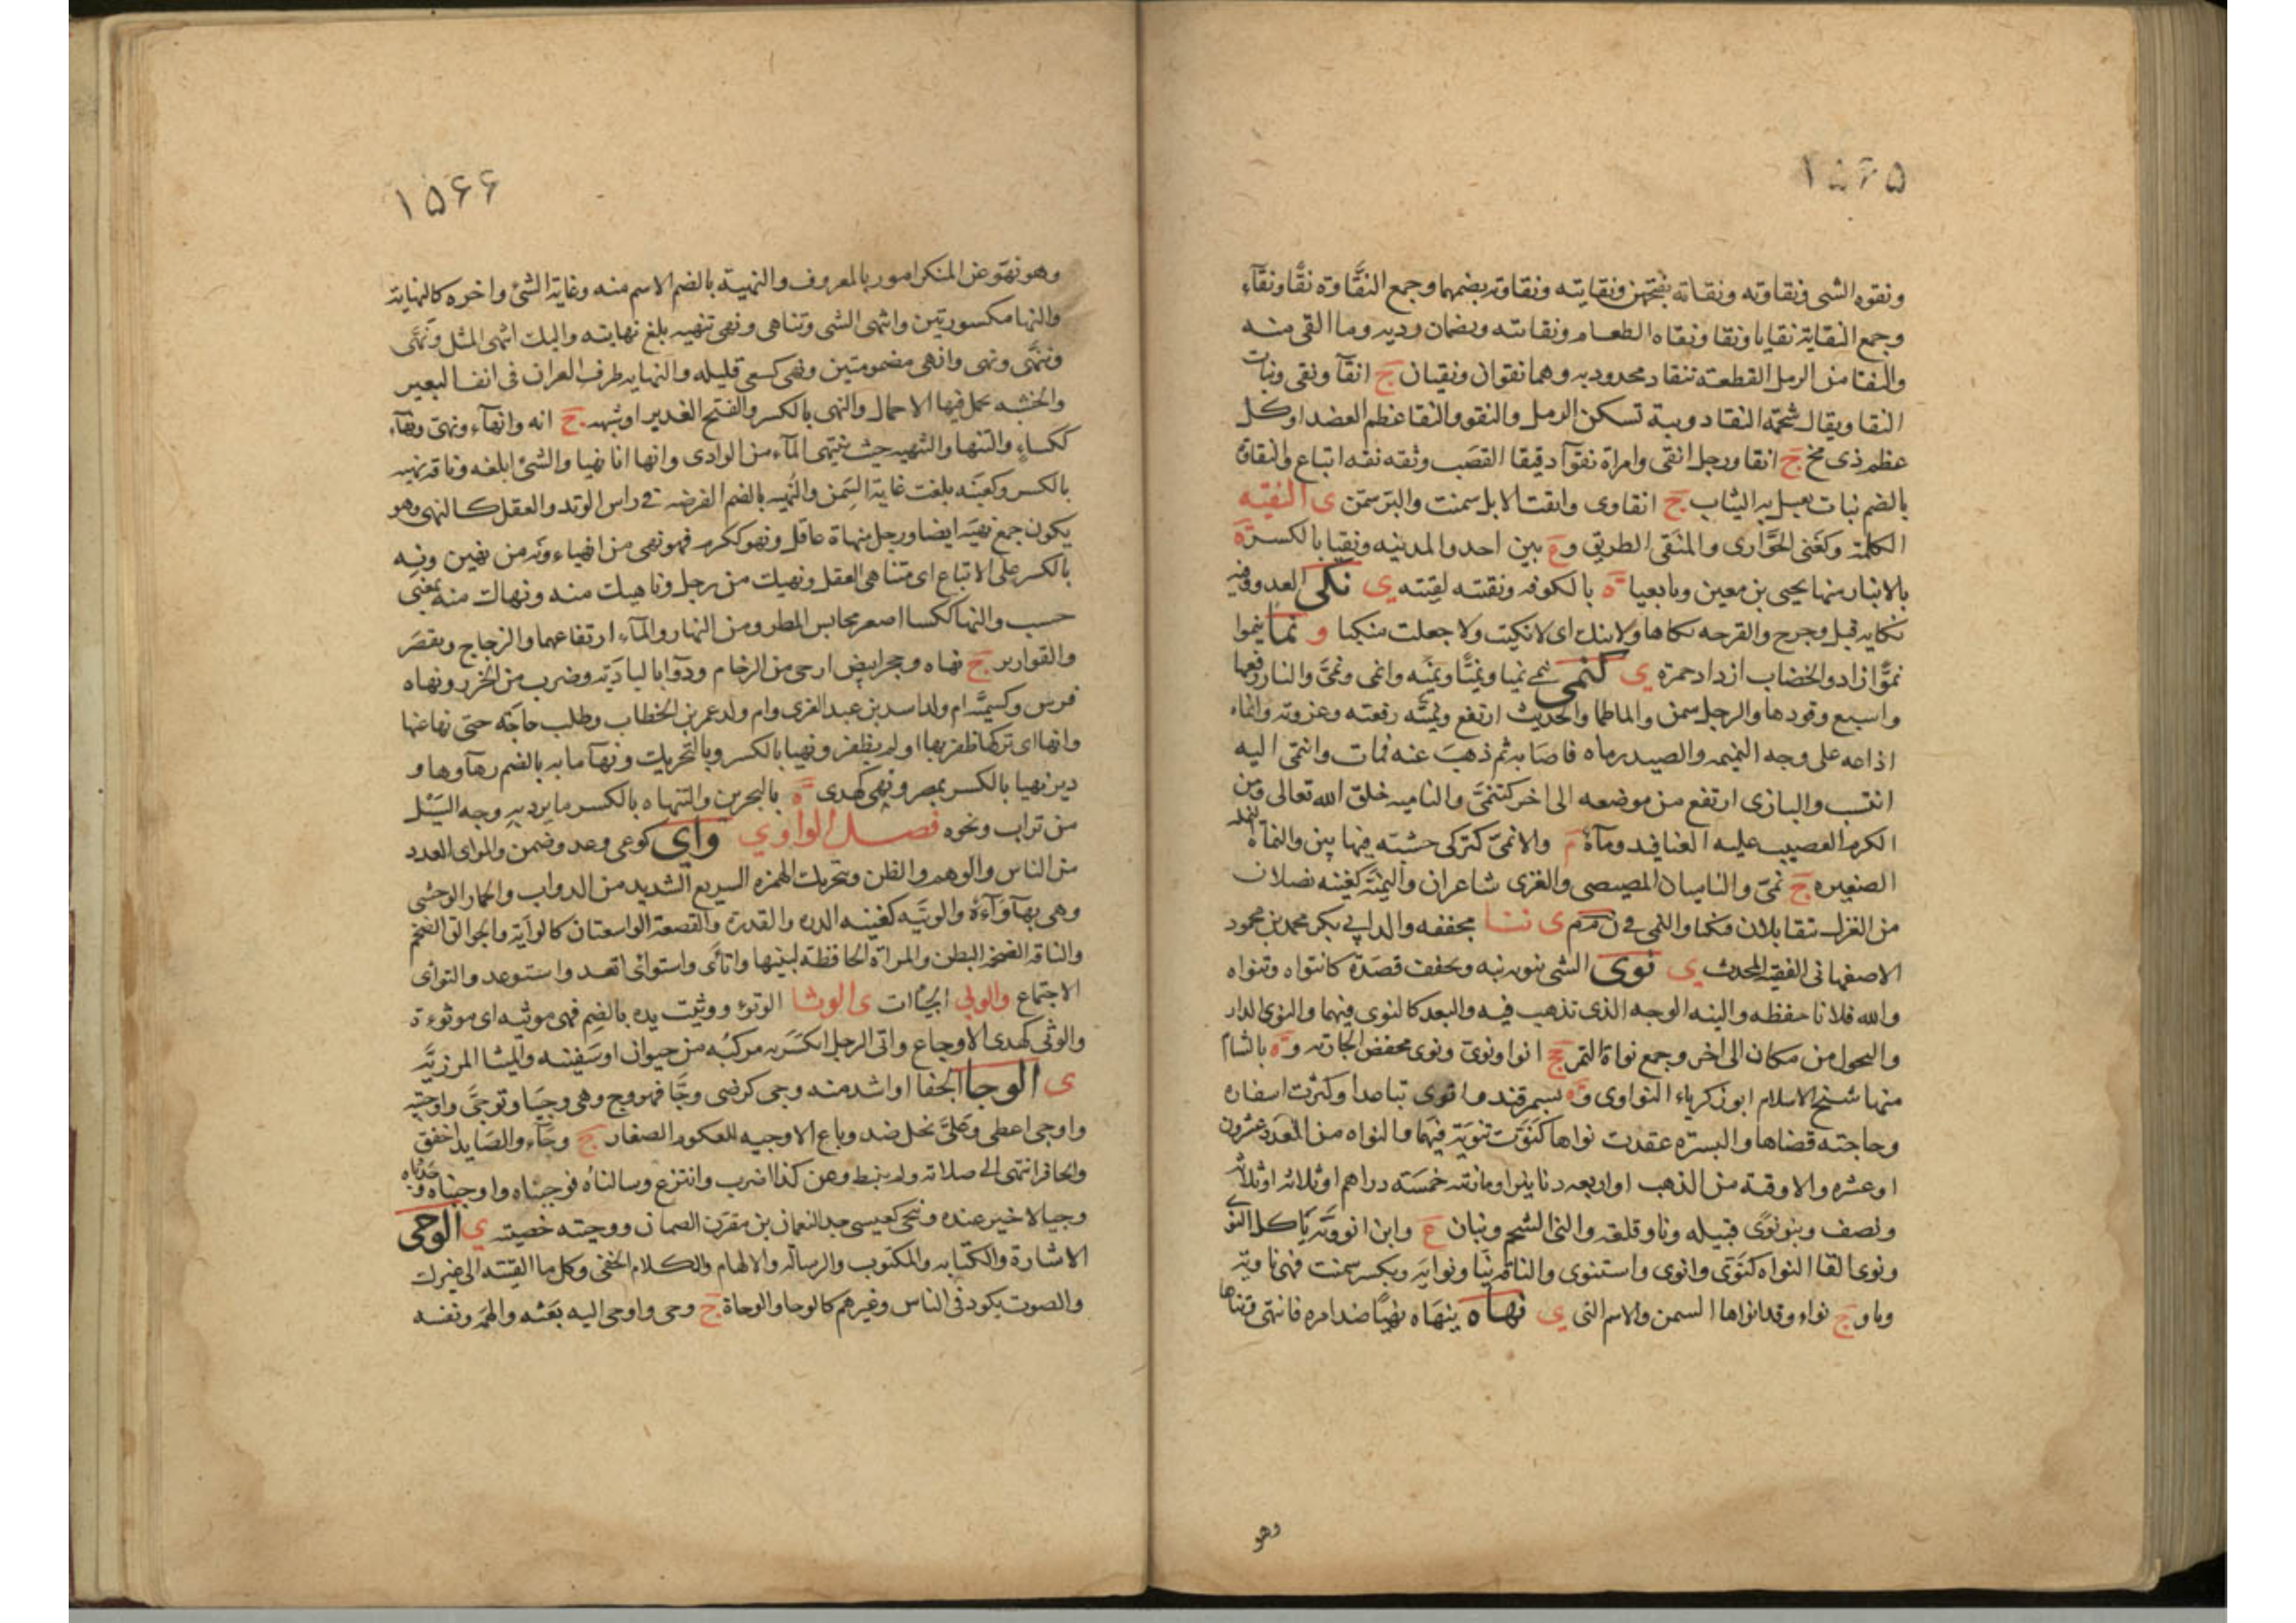 ١٥٦٥
ونقوه الشى ونقاوته ونقاته بفتحهن ونقايته ونقاوته بضمهما وجمع النقاوة نقا ونقآء
وجمع النقاية نقايا ونقا ونقاه الطعام ونقاته ويضمان رديه وما القى منه
والنقا من الرمل القطعة تنقاد محدودبه وهما نقوان ونقيان ج انقآ ونقى وبنات
النقا ويقال شحمة النقا دويبة تسكن الرمل والنقو والنقا عظم العضد او كل
عظم ذى مخ ج انقا ورجل انقى وامراة نقوآ دقيقا القصب وثقه نقه اتباع والنقاة
بالضم نبات يغسل به الثياب ج انقاوى وانقت الابل سمنت والبر سمن ى النقيه
الكلمة وكغنى الحوارى والمنقى الطريق وع بين احد والمدينه ونقيا بالكسر ة
بالانبار منها يحيى بن معين وبابعيا ة بالكوفه ونقته لقيته ى نكى العدو وفيه
نكايه قتل وجرح والقرحه نكاها ولا تنك اى لا نكيت ولا جعلت منكيا و نما ينموا
نموا زاد والخضاب ازداد حمرة ى كنمى ينمى نميا ونميا ونميه وانمى ونمى والنار رفعها
واسبع وقودها والرجل سمن والماطما والحديث ارتفع ونميته رفعته وعزوته وانماه
اذاعه على وجه النميمه والصيد رماه فاصابه ثم ذهب عنه فمات وانتمى اليه
انتسب والبازى ارتفع من موضعه الى اخر كتنمى والناميه خلق الله تعالى ومن
الكرم القضيب عليه العناقيد ومآة م والانمى كتركى خشبه فيها تبن والنماة النمله
الصغيره ج نمى والناميان المصيصى والغزى شاعران والنمية كغنيه نصلان
من الغزل تتقابلان فتكبا والنمى فى ن م م ى ننا مخففه والد ابى بكر محمد بن محمود
الاصفهانى الفقيه المحدث ى نوى الشى ينويه نيه ويخفف قصدة كانتواه وتنواه
والله فلانا حفظه والنيه الوجه الذى تذهب فيه والبعد كالنوى فيهما والنوى الدار
والتحول من مكان الى اخر وجمع نواة التمر جج انوا ونوى ونوى مخفض الجارية وة بالشام
منها شيخ الاسلام ابو زكرياء النواوى وة بسمرقند وانوى تباعدا وكثرت اسفاره
وحاجته قضاها والبسره عقدت نواها كنوت تنوية فيهما والنواه من العدد عشرون
او عشره والاوقية من الذهب او اربعه دنانير او ما زنته خمسة دراهم او ثلاثه او ثلاثة
ونصف وبنو نوى قبيله وناو قلعه والنى الشحم ونيان ع وابن انووية ياكل النوى
ونوى القا النواه كنوى وانوى واستنوى والناقه نيا ونوايه ويكسر سمنت فهى ناويه
وناو ج نواء وقد انواها السمن والاسم النى ى نهاه ينهاه نهيا ضد امره فانتهى وتناها
وهو
١٥٦٦
وهو نهو عن المنكر امور بالمعروف والنهية بالضم الاسم منه وغاية الشئ واخره كالنهاية
والنها مكسورتين وانتهى الشى وتناهى ونهى تنهيه بلغ نهايته واليك انتهى المثل ونهى
وننهى ونهى وانهى مضمومتين ونهى كسعى قليله والنهايه طرف العران فى انف البعير
والخشبه تحمل فيها الاحمال والنهى بالكسر والفتح الغدير او شبهه ج انه وانهآء ونهى ونهآء
ككساء والتنها والتنهيه حيث ينتهى المآء من الوادى وانها اتا نهيا والشئ ابلغه وناقه نهيه
بالكسر وكغنيه بلغت غاية السمن والنهيه بالضم الفرضه فى راس الوتد والعقل كالنهى وهو
يكون جمع نهيه ايضا ورجل منهاة عاقل ونهو ككرم فهو نهى من انهياء ونه من نهين ونه
بالكسر على الاتباع اى متناهى العقل ونهيك من رجل وناهيك منه ونهاك منه بمعنى
حسب والنها ككسا اصغر محابس المطر ومن النهار والمآء ارتفاعهما والزجاج ويقصر
والقوارير ج نهاه وحجر ابيض ارحى من الرخام ودوآ بالبادية وضرب من الخرز ونهاه
فرس وكسمية ام ولد اسد بن عبد العزى وام ولد عمر بن الخطاب وطلب حاجه حتى نهى عنها
وانها اى تركها ظفر بها او لم يظفر ونهيا بالكسر وبالتحريك ونهآ مايه بالضم زهآوها و
دير نهيا بالكسر بمصر ونهى كهدى ة بالبحرين والتنهاه بالكسر ما يرد به وجه السيل
من تراب ونحوه فصل الواو ى واى كوعى وعد وضمن والواى العدد
من الناس والوهم والظن وبتحريك الهمزه السريع الشديد من الدواب والحمار الوحشى
وهى بهآ وآءة والوئية كغنيه الدره والقدره والقصعة الواسعتان كالوآية والجوالق الضخم
والناقه الضخمه البطن والمراة الحافظة لبيتها واتاى واستواى اتعد واستوعد والتواى
الاجتماع والوتى الجيات ى الوثا الوثؤ ووثيت يده بالضم فهى موثيه اى موثوءة
والوثى كهدى الاوجاع واثى الرجل انكسر به مركبه من حيوان او سفينه والميثا المرزية
ى الوجا الحفا او اشد منه وجى كرضى وجا فهو وج وهى وجيا وتوجى واوجيته
واوجى اعطى وعلى بخل ضد وباع الاوجيه للعكوم الصغار ج وجآء والصايد اخفق
والحافر انتهى الى صلابه ولم ينبط وعن كذا اضرب وانتزع وسالناه فوجيناه واوجيناه وجدناه
وجيا لا خير عنده ونحى كعيسى جد النعمان بن مقرن الصحابى ووجيته خصيته ى الوحى
الاشارة والكتابه والمكتوب والرساله والالهام والكلام الخفى وكل ما القيته الى غيرك
والصوت يكون فى الناس وغيرهم كالوحا والوحاة ج وحى واوحى اليه بعثه والهمه ونفسه